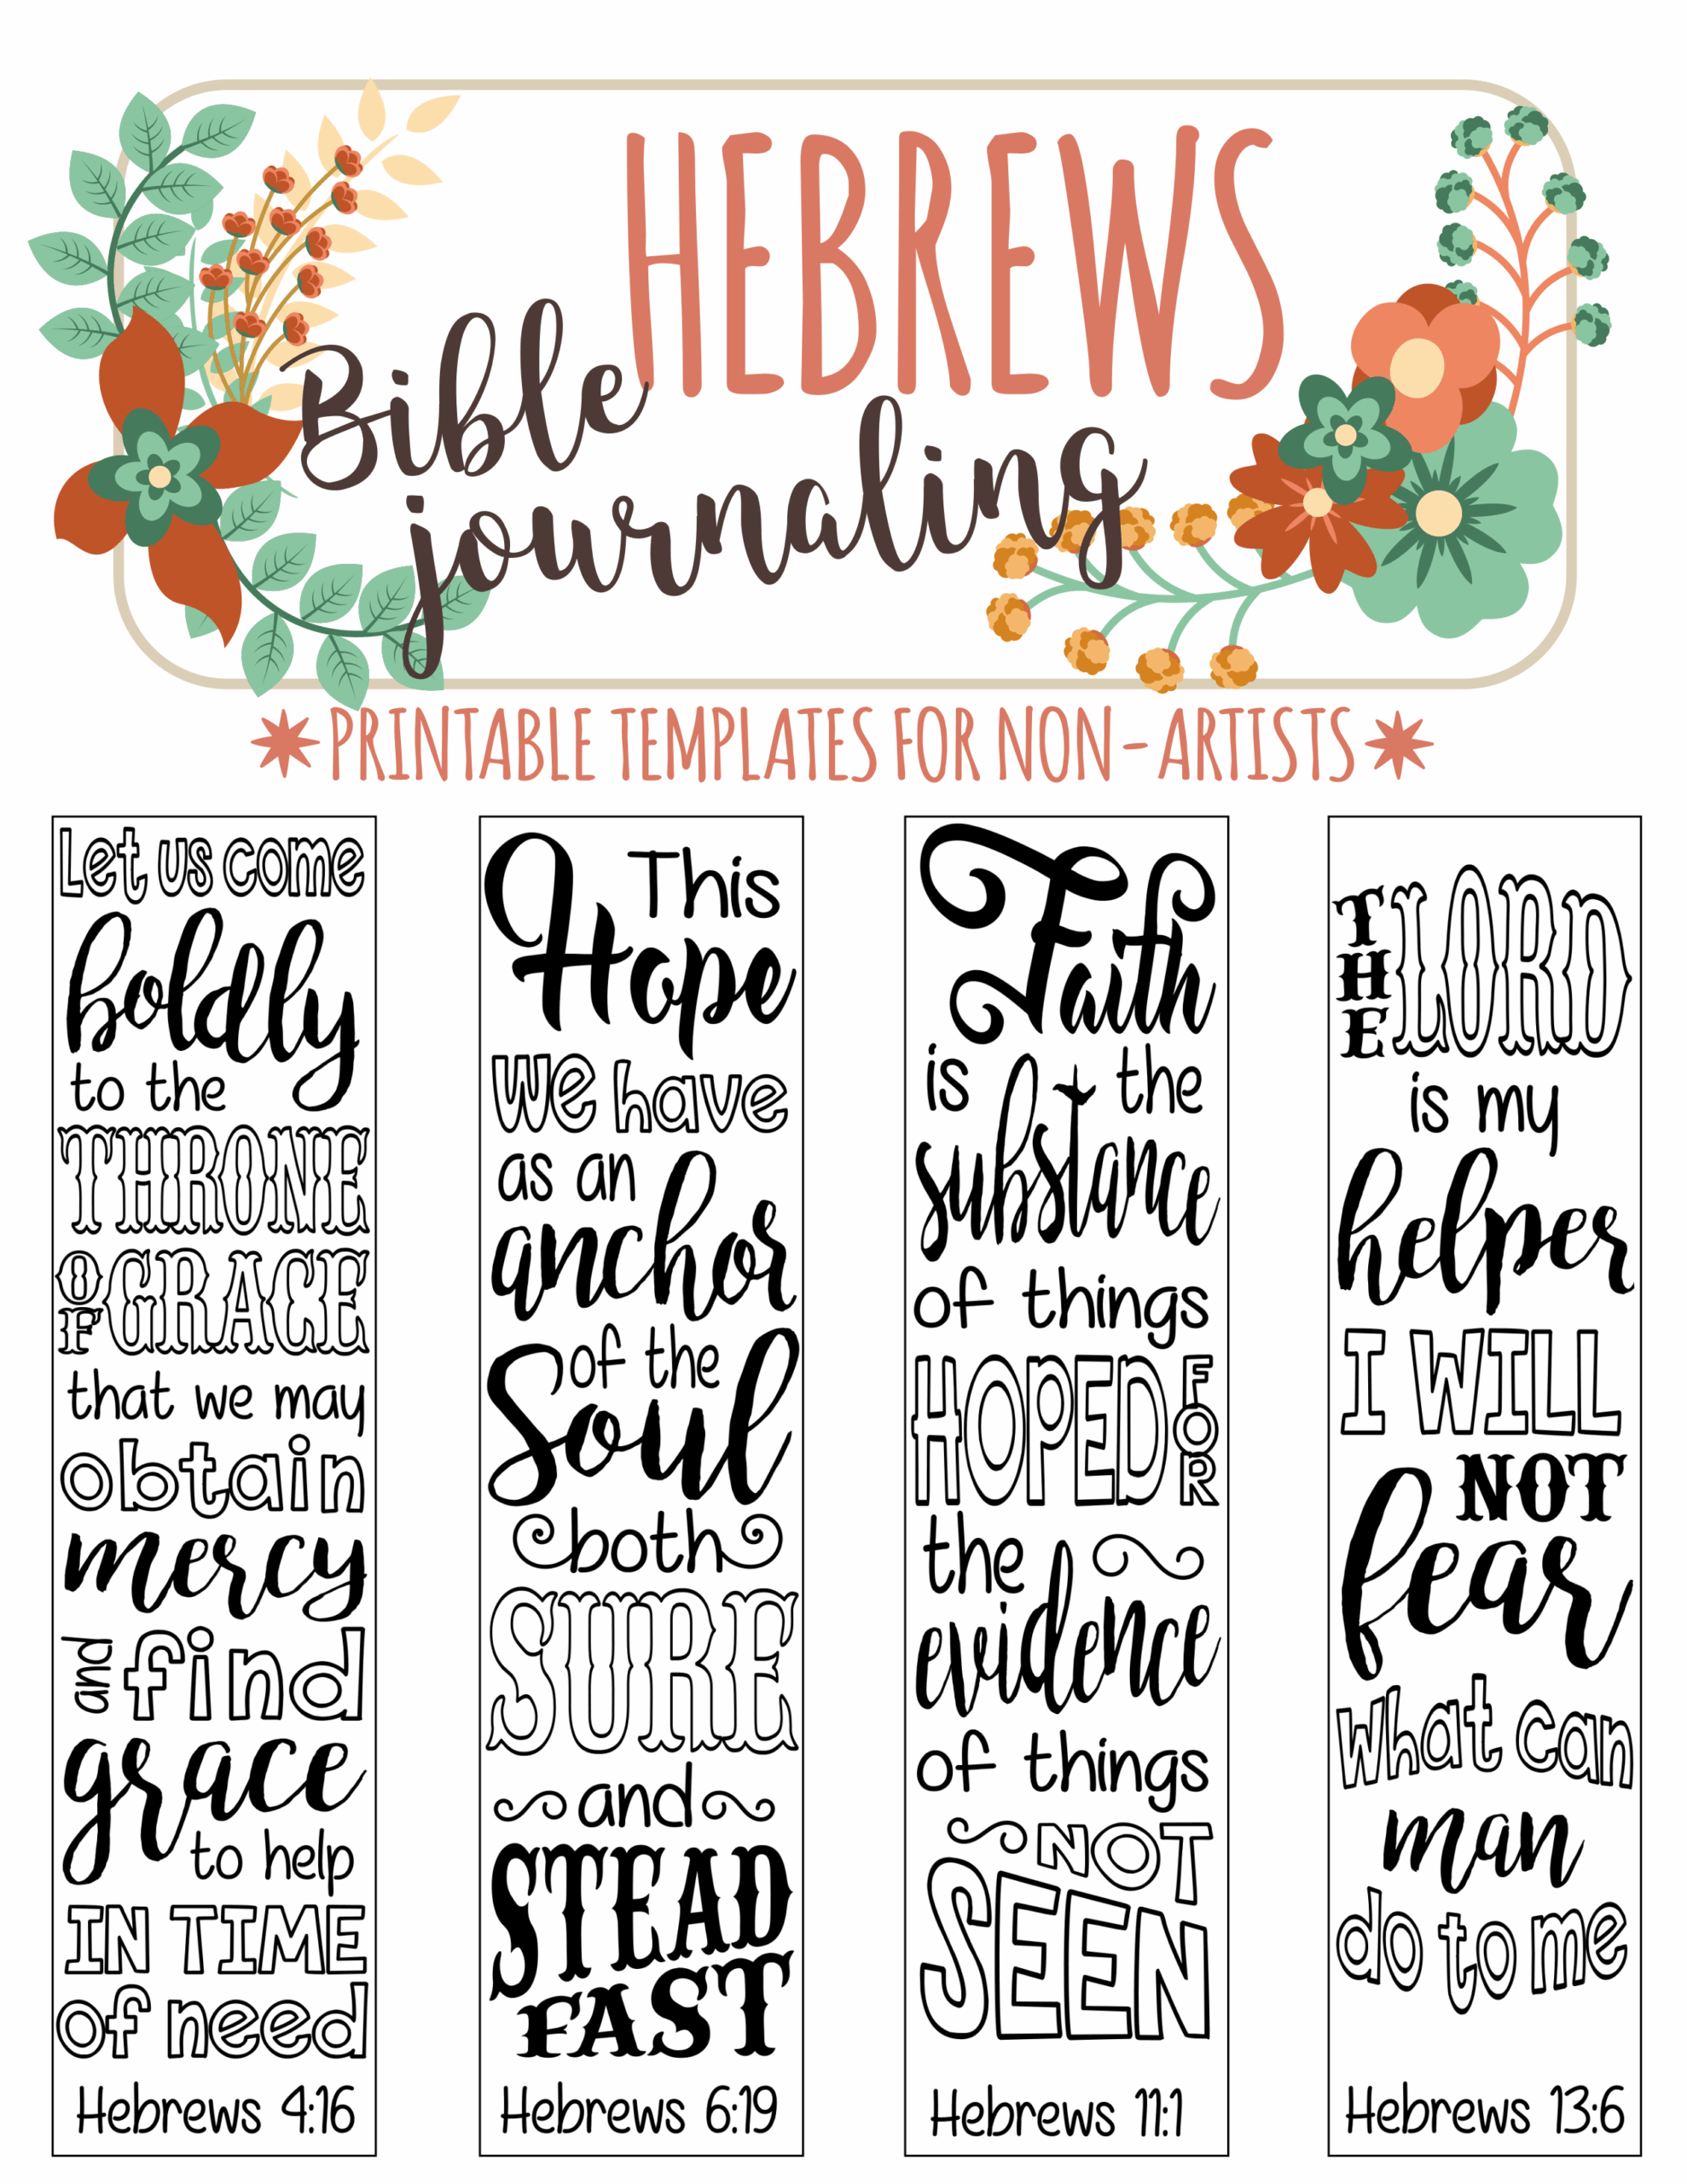 HEBREWS
Bible
journaling
PRINTABLE TEMPLATES FOR NON-ARTISTS
Let us come
boldly
to the
THRONE
OF GRACE
that we may
obtain
mercy
and find
grace
to help
IN TIME
of need
Hebrews 4:16
This
Hope
we have
as an
anchor
of the
Soul
both
SURE
and
STEAD
FAST
Hebrews 6:19
Faith
is the
substance
of things
HOPED FOR
the
evidence
of things
NOT
SEEN
Hebrews 11:1
THE LORD
is my
helper
I WILL
NOT
fear
what can
man
do to me
Hebrews 13:6